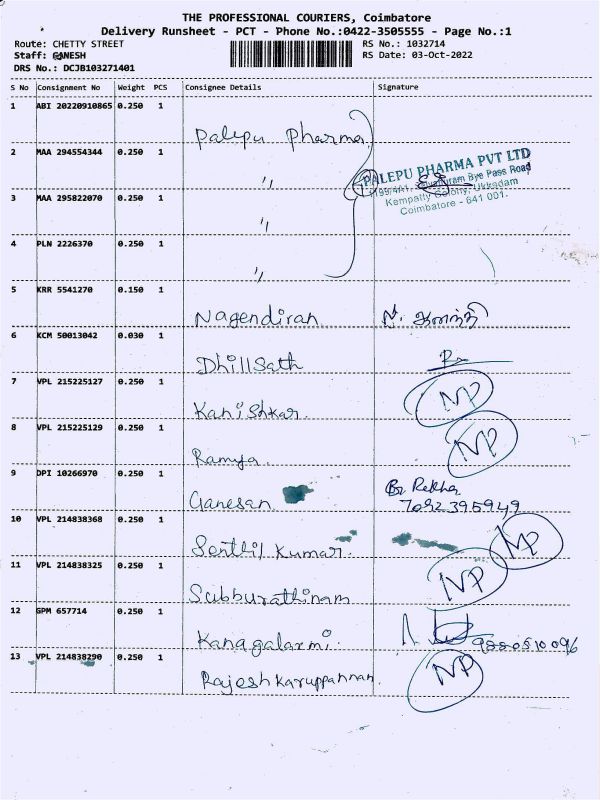 THE PROFESSIONAL COURIERS, Coimbatore
Delivery Runsheet - PCT - Phone No.:0422-3505555 - Page No.:1
Route: CHETTY STREET
RS No.: 1032714
Staff: GANESH
RS Date: 03-Oct-2022
DRS No.: DCJB103271401
S No Consignment No Weight PCS Consignee Details Signature
1 ABI 20220910865 0.250 1
Palepu Pharma
2 MAA 294554344 0.250 1
"
PALEPU PHARMA PVT LTD
Bye Pass Road
Kempatty Colony, Ukkadam
Coimbatore - 641 001.
3 MAA 295822070 0.250 1
"
4 PLN 2226370 0.250 1
"
5 KRR 5541270 0.150 1
Nagendiran
6 KCM 50013042 0.030 1
Dhillsath
7 VPL 215225127 0.250 1
Kanishkar NP
8 VPL 215225129 0.250 1
Ramya NP
9 DPI 10266970 0.250 1
Ganesan Rekha
7092395949
10 VPL 214838368 0.250 1
Senthil Kumar NP
11 VPL 214838325 0.250 1
Subburathinam NP
12 GPM 657714 0.250 1
Kanagalaxmi
13 VPL 214838290 0.250 1
Rajesh Karuppannan NP